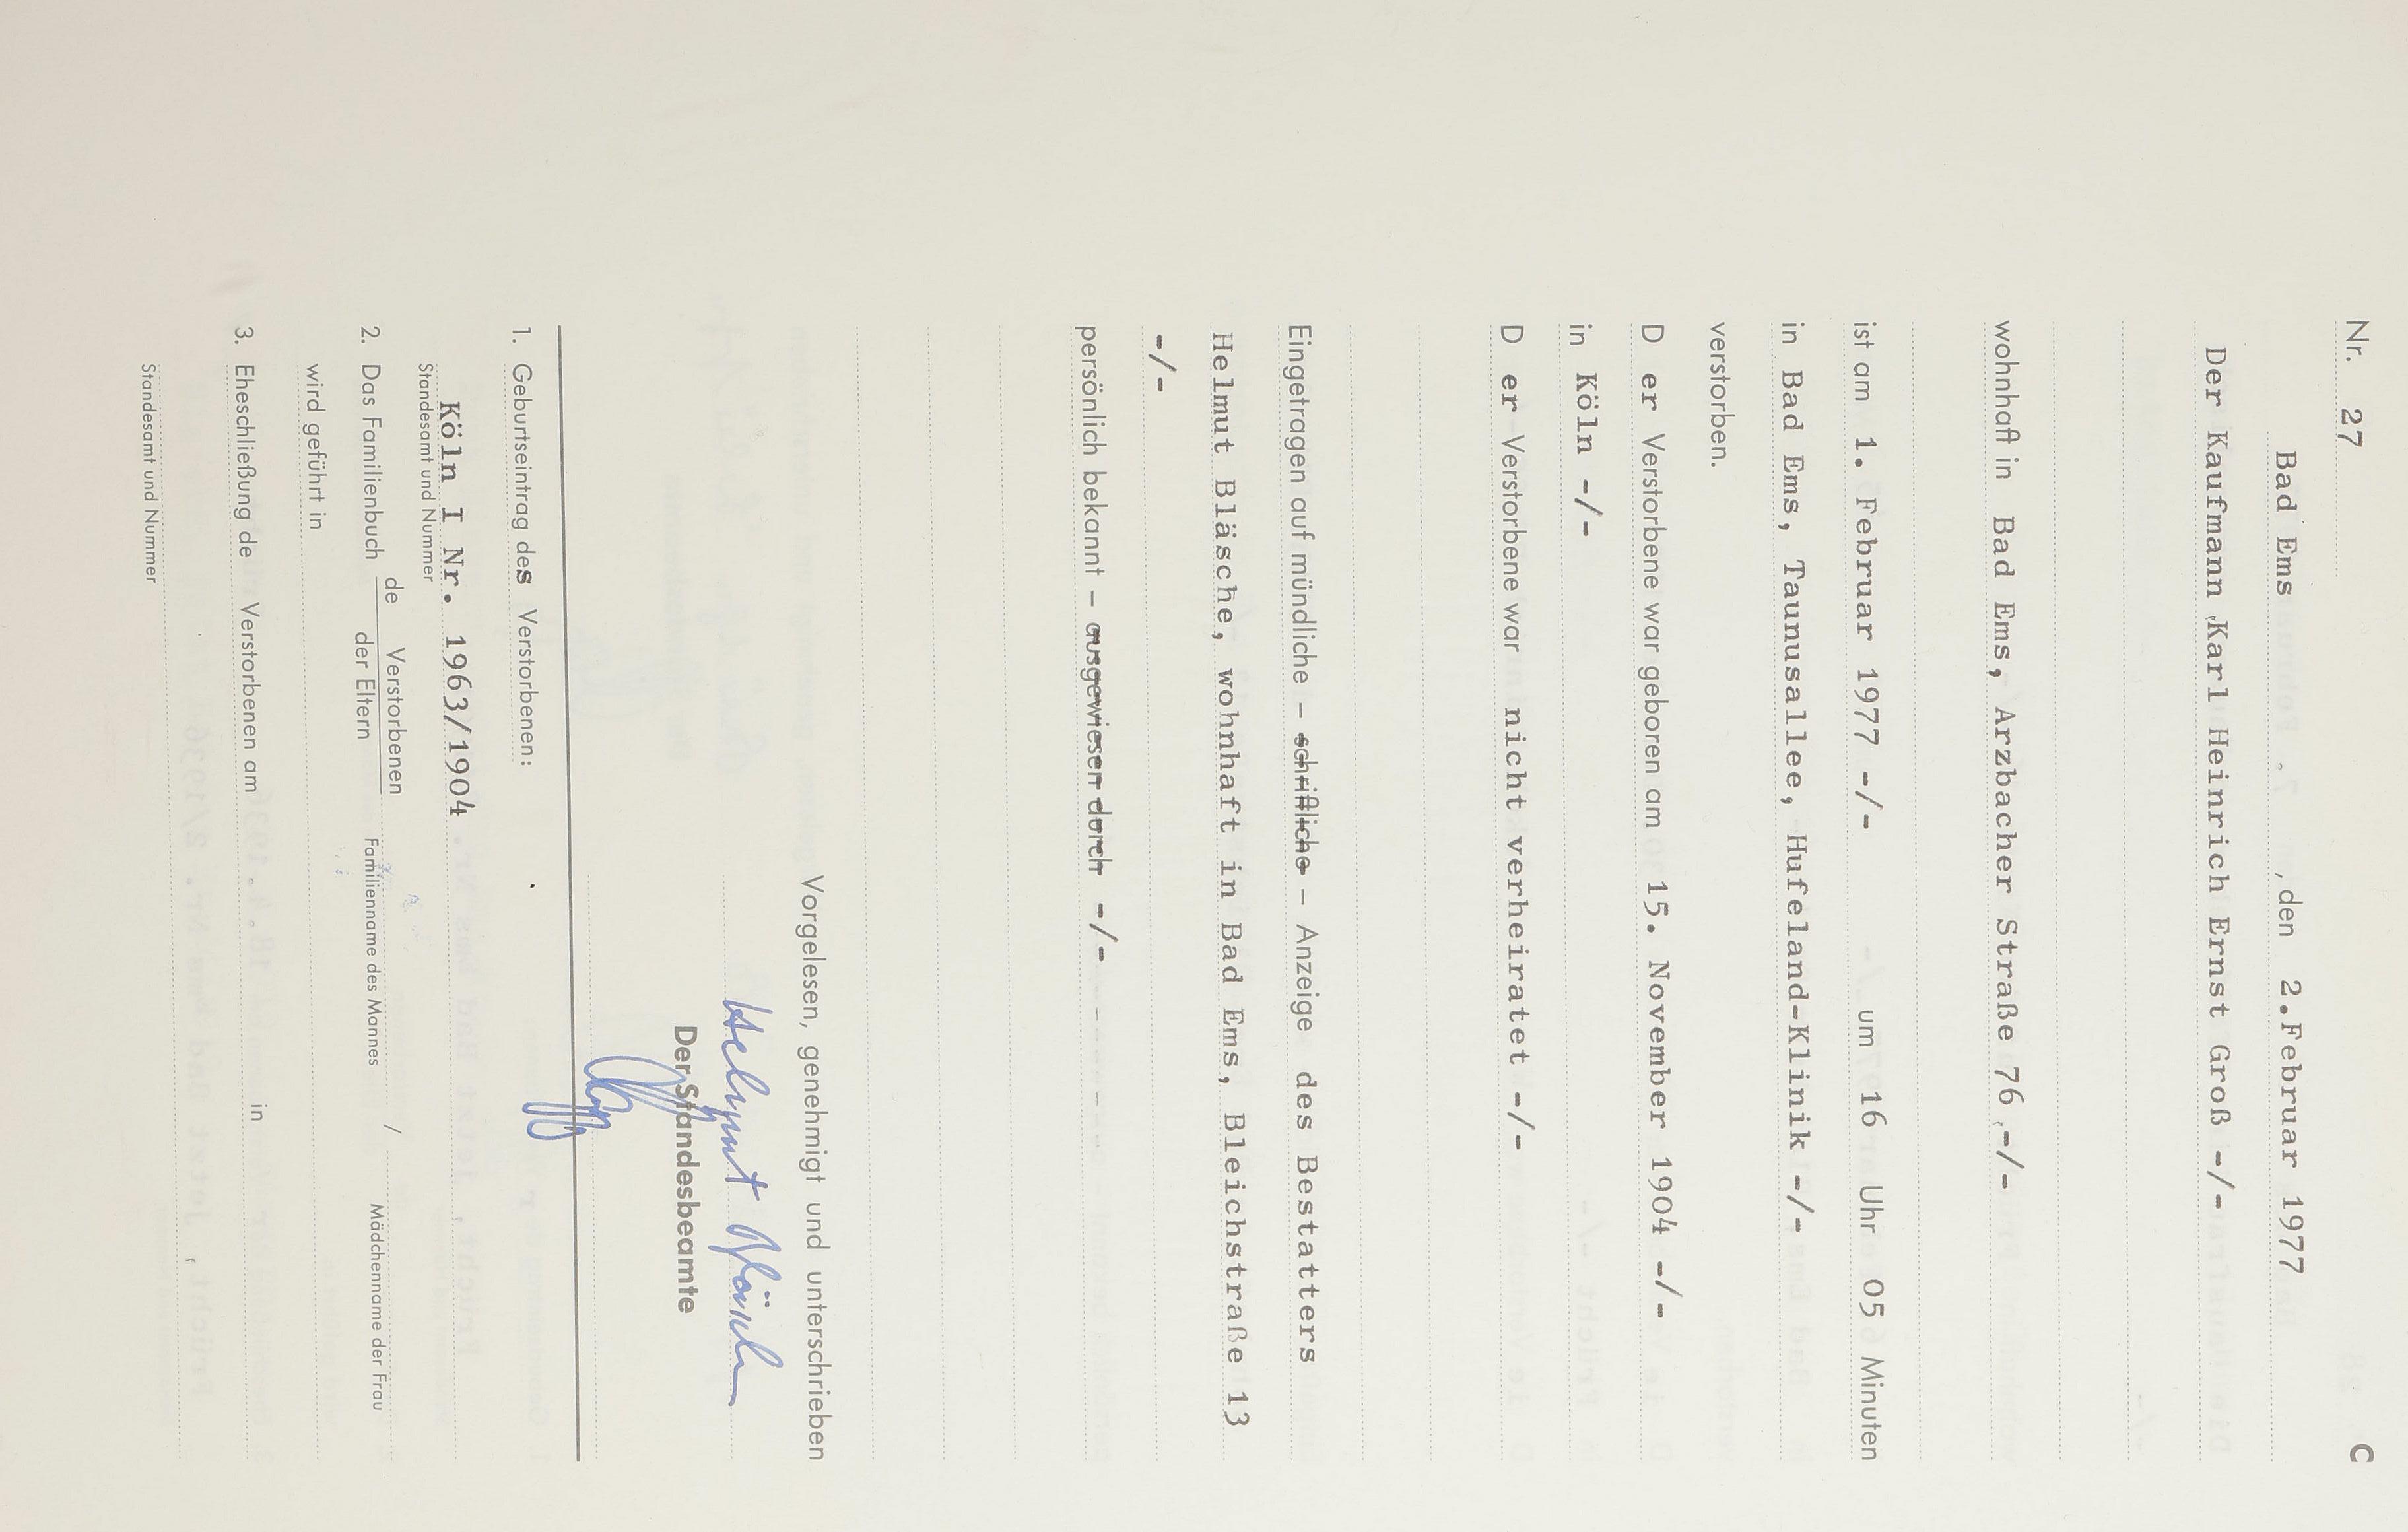 Nr. 27 C
Bad Ems, den 2.Februar 1977
Der Kaufmann Karl Heinrich Ernst Groß -/-
wohnhaft in Bad Ems, Arzbacher Straße 76 -/-
ist am 1. Februar 1977 -/- um 16 Uhr 05 Minuten
in Bad Ems, Taunusallee, Hufeland-Klinik -/-
verstorben.
D er Verstorbene war geboren am 15. November 1904 -/-
in Köln -/-
D er Verstorbene war nicht verheiratet -/-
Eingetragen auf mündliche – schriftliche – Anzeige des Bestatters
Helmut Bläsche, wohnhaft in Bad Ems, Bleichstraße 13
-/-
persönlich bekannt – ausgewiesen durch -/-
Vorgelesen, genehmigt und unterschrieben
Helmut Bläsche
Der Standesbeamte
1. Geburtseintrag des Verstorbenen:
Köln I Nr. 1963/1904
Standesamt und Nummer
2. Das Familienbuch de Verstorbenen / der Eltern
Familienname des Mannes / Mädchenname der Frau
wird geführt in
3. Eheschließung de Verstorbenen am in
Standesamt und Nummer